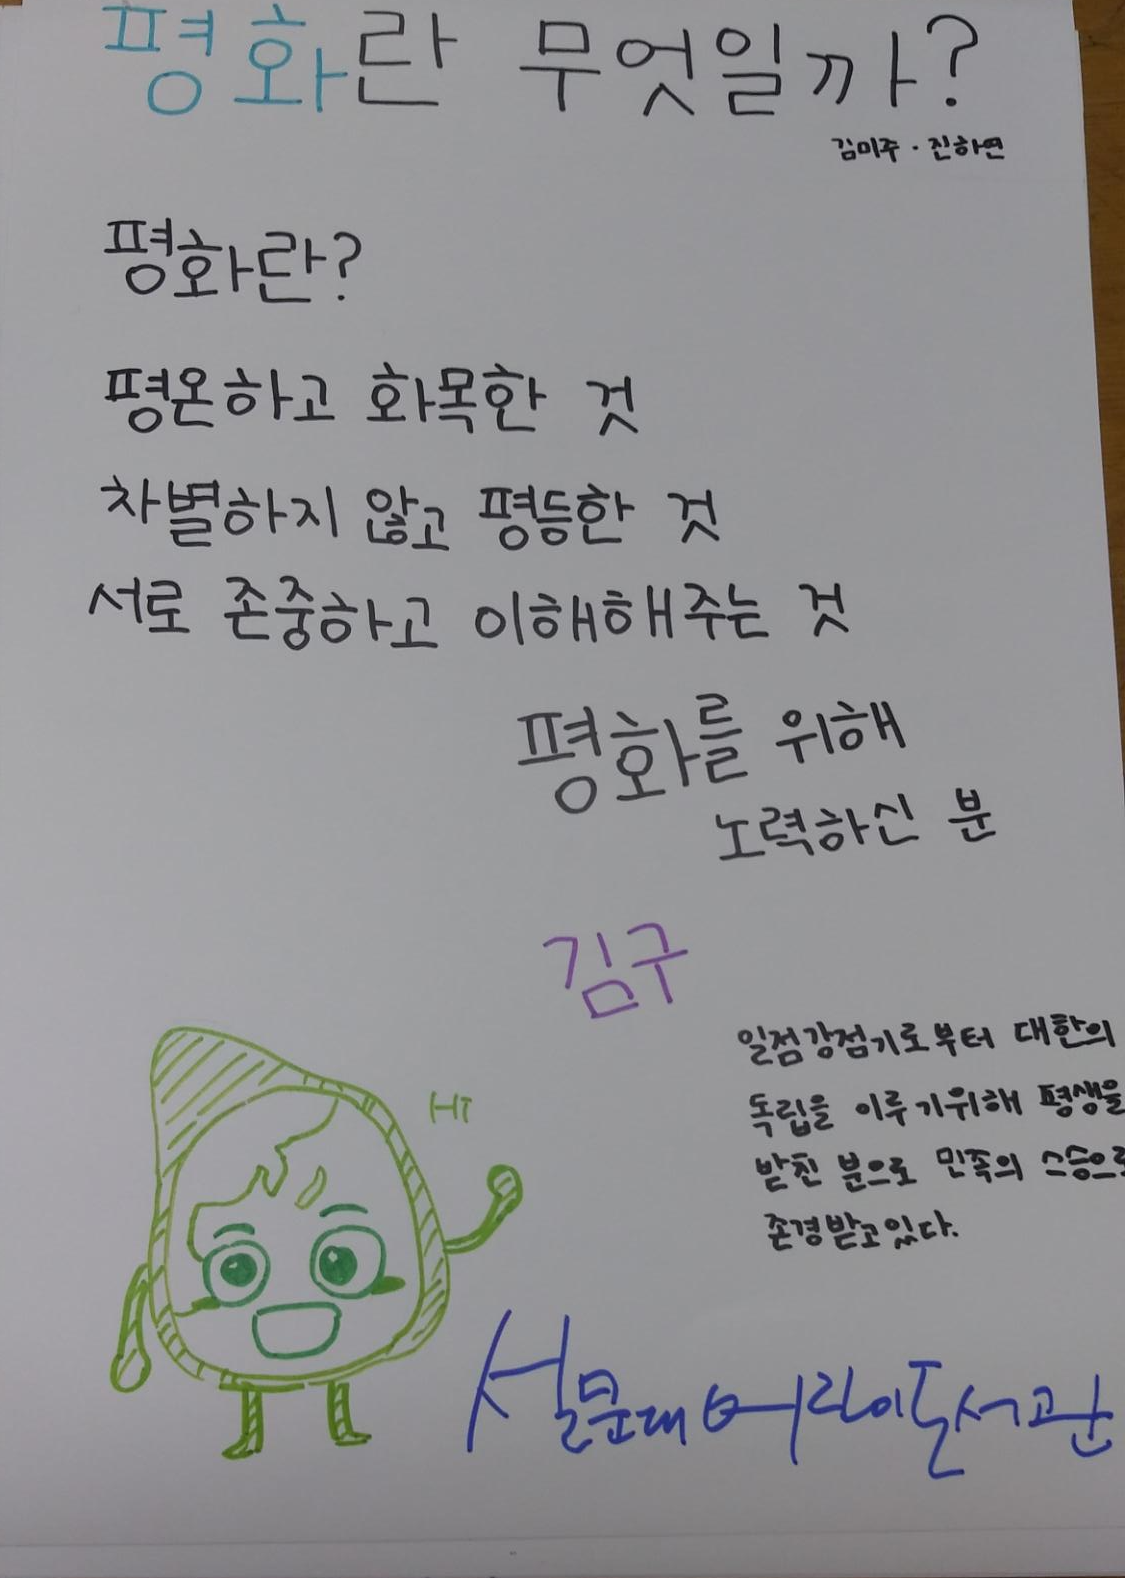 평화란 무엇일까?
김미주 · 진하연
평화란?
평온하고 화목한 것
차별하지 않고 평등한 것
서로 존중하고 이해해주는 것
평화를 위해
노력하신 분
김구
일점강점기로부터 대한의
독립을 이루기위해 평생을
받친 분으로 민족의 스승으로
존경받고있다.
Hi
설문대어린이도서관